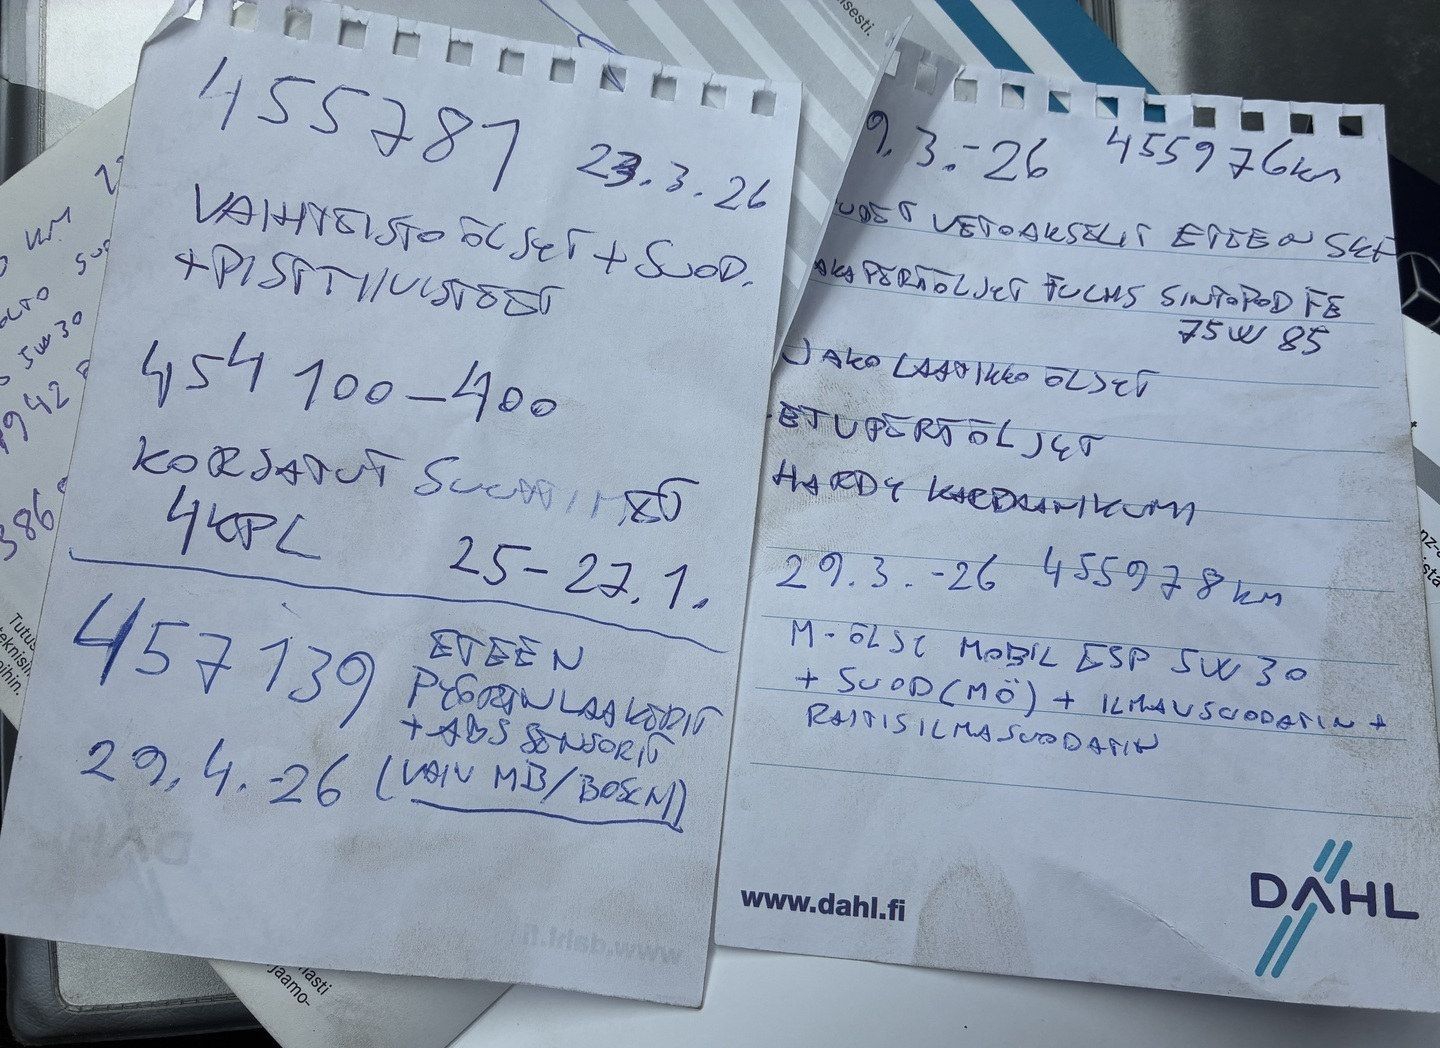 455781 23.3.26
VAIHTEISTOÖLJYT + SUOD.
+ PISTTIIVISTEET
454 100-400
KORJATUT SUUTTIMET
4KPL 25-27.1.
457139 ETEEN
PYÖRÄNLAAKERIT
+ ABS SENSORIT
29.4.-26 (VAIN MB/BOSCH)
9.3.-26 455976km
UDET VETOAKSELIT ETEEN SKF
AKAPERÄÖLJYT FUCHS SINTOPOD FE
75W85
JAKOLAATIKKO ÖLJYT
ETUPERÄÖLJYT
HARDY KARDAANIKUMI
29.3.-26 455978km
M-ÖLJY MOBIL ESP 5W30
+ SUOD (MÖ) + ILMANSUODATIN +
RAITISILMASUODATIN
www.dahl.fi
DAHL
KM
5W30
942
386
Tutus
teknisii
oihin.
nasti
jaamo-
isesti.
nz-
ista